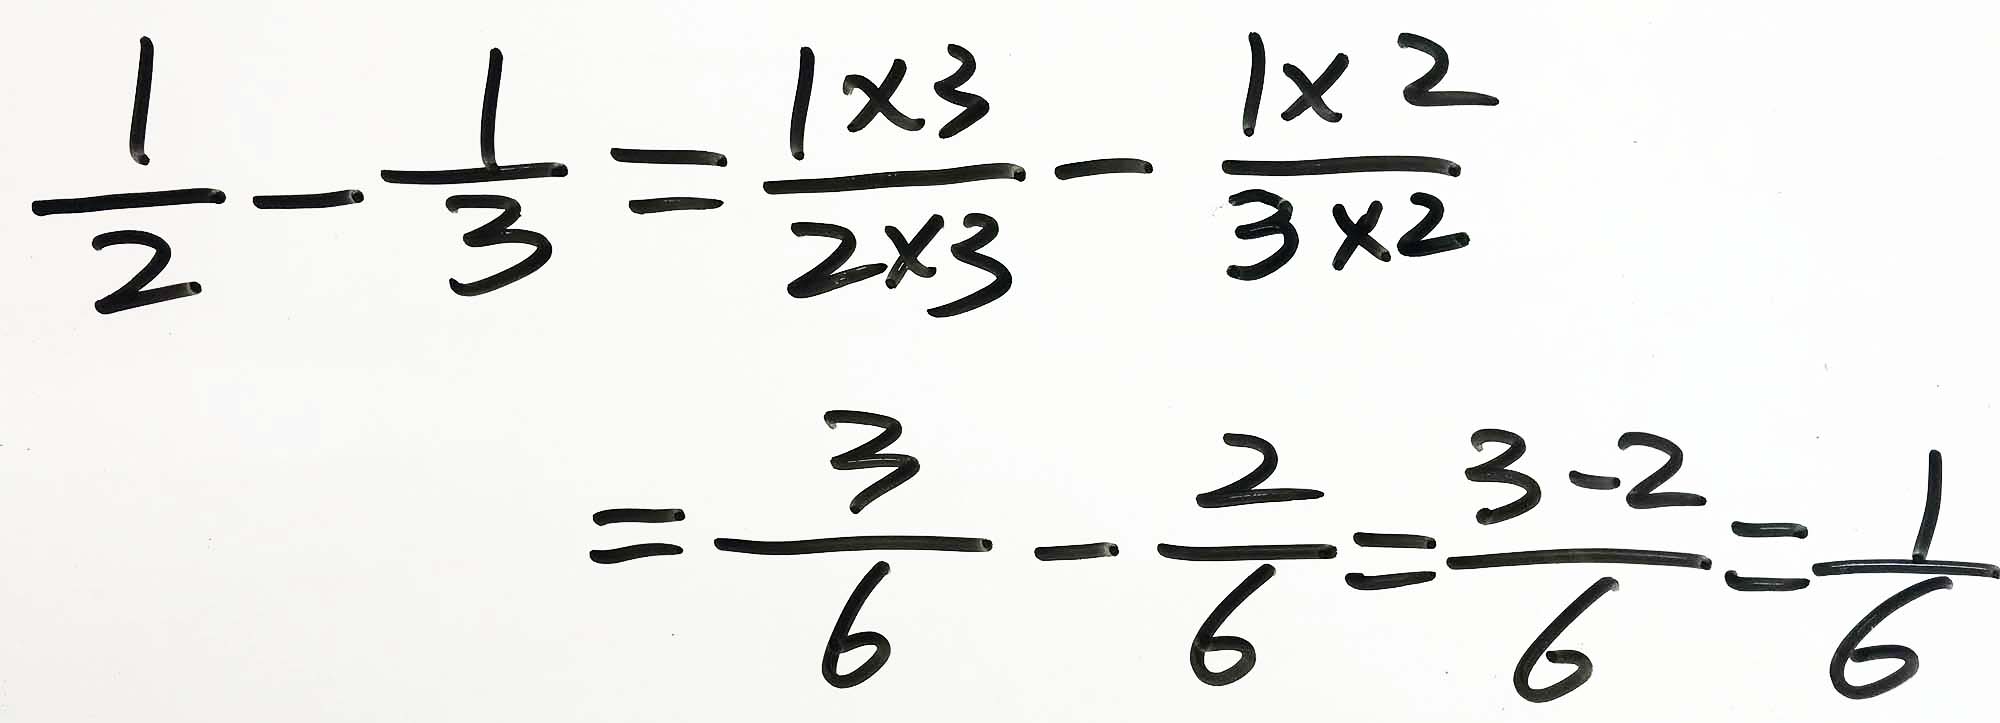 1/2 - 1/3 = 1×3/2×3 - 1×2/3×2
= 3/6 - 2/6 = 3-2/6 = 1/6